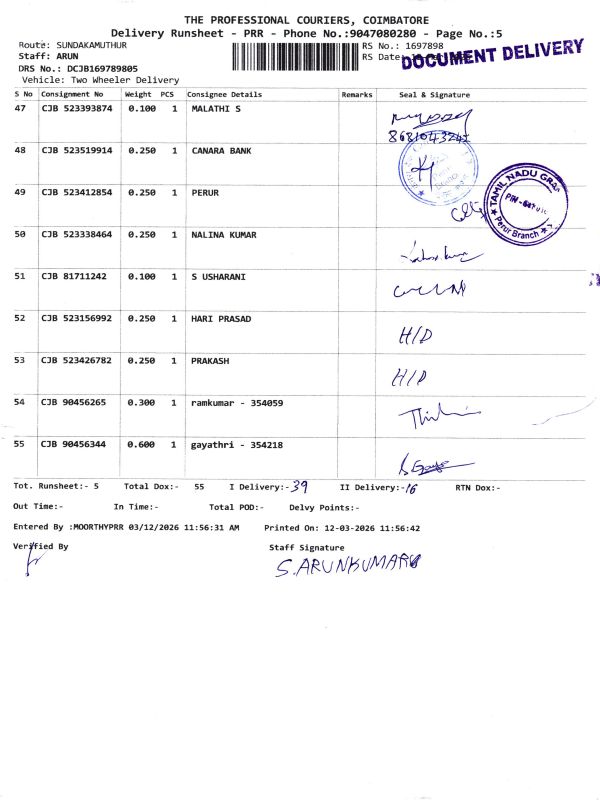 THE PROFESSIONAL COURIERS, COIMBATORE
Delivery Runsheet - PRR - Phone No.:9047080280 - Page No.:5
Route: SUNDAKAMUTHUR
RS No.: 1697898
Staff: ARUN
RS Date:
DOCUMENT DELIVERY
DRS No.: DCJB169789805
Vehicle: Two Wheeler Delivery
S No Consignment No Weight PCS Consignee Details Remarks Seal & Signature
47 CJB 523393874 0.100 1 MALATHI S
8681043241
48 CJB 523519914 0.250 1 CANARA BANK
49 CJB 523412854 0.250 1 PERUR
TAMIL NADU GRA
Perur Branch
50 CJB 523338464 0.250 1 NALINA KUMAR
51 CJB 81711242 0.100 1 S USHARANI
52 CJB 523156992 0.250 1 HARI PRASAD H/D
53 CJB 523426782 0.250 1 PRAKASH H/D
54 CJB 90456265 0.300 1 ramkumar - 354059
55 CJB 90456344 0.600 1 gayathri - 354218
Tot. Runsheet:- 5 Total Dox:- 55 I Delivery:-39 II Delivery:-16 RTN Dox:-
Out Time:- In Time:- Total POD:- Delvy Points:-
Entered By :MOORTHYPRR 03/12/2026 11:56:31 AM Printed On: 12-03-2026 11:56:42
Verified By Staff Signature
S.ARUNKUMAR